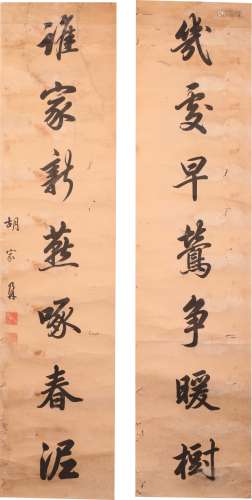 幾處早鶯争暖樹
誰家新燕啄春泥
胡家